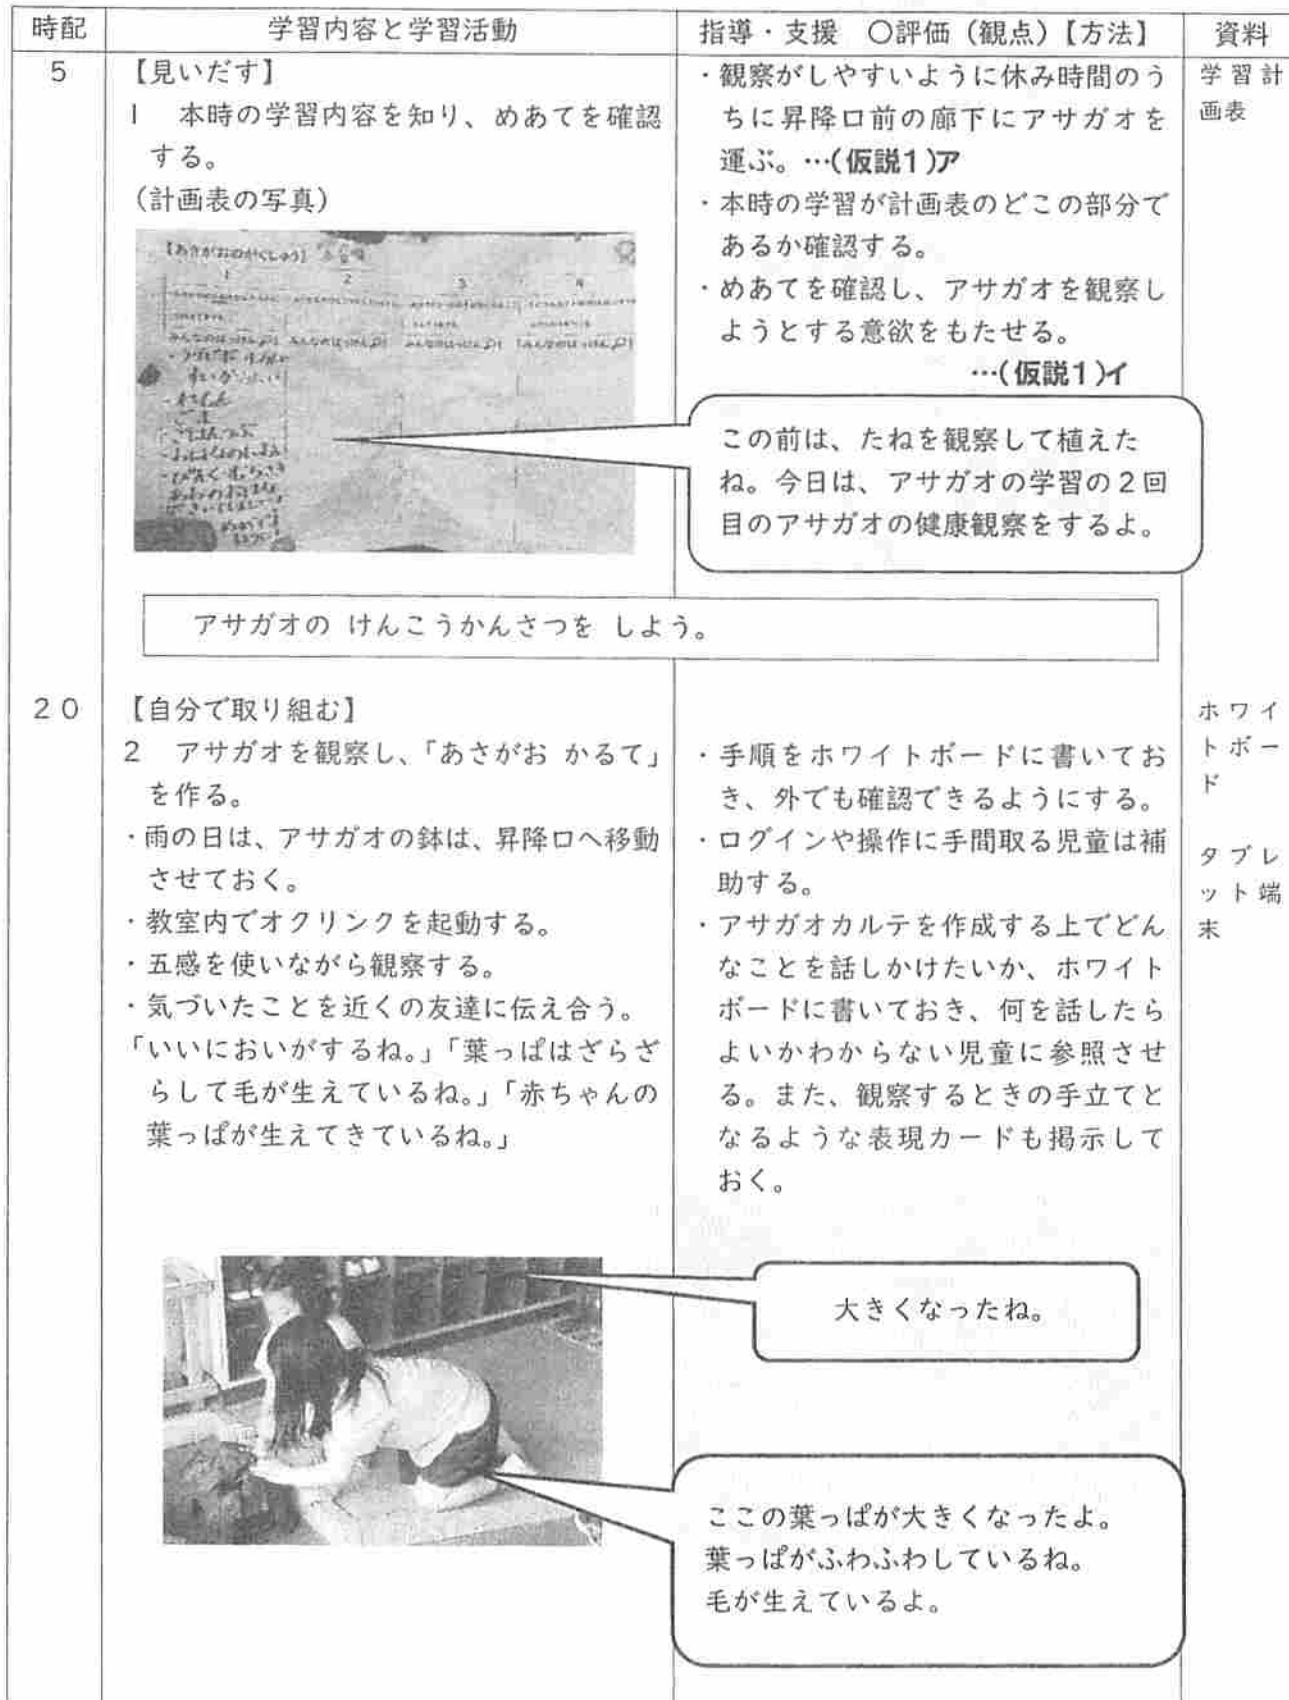 時配
学習内容と学習活動
指導・支援　○評価（観点）【方法】
資料
5
【見いだす】
1　本時の学習内容を知り、めあてを確認
する。
（計画表の写真）
・観察がしやすいように休み時間のう
ちに昇降口前の廊下にアサガオを
運ぶ。…(仮説1)ア
・本時の学習が計画表のどこの部分で
あるか確認する。
・めあてを確認し、アサガオを観察し
ようとする意欲をもたせる。
…(仮説1)イ
学習計
画表
【あさがおのがくしゅう】
1
2
3
4
みんなのはっけん
みんなのはっけん
みんなのはっけん
みんなのはっけん
この前は、たねを観察して植えた
ね。今日は、アサガオの学習の2回
目のアサガオの健康観察をするよ。
アサガオの けんこうかんさつを しよう。
20
【自分で取り組む】
2　アサガオを観察し、「あさがお かるて」
を作る。
・雨の日は、アサガオの鉢は、昇降口へ移動
させておく。
・教室内でオクリンクを起動する。
・五感を使いながら観察する。
・気づいたことを近くの友達に伝え合う。
「いいにおいがするね。」「葉っぱはざらざ
らして毛が生えているね。」「赤ちゃんの
葉っぱが生えてきているね。」
・手順をホワイトボードに書いてお
き、外でも確認できるようにする。
・ログインや操作に手間取る児童は補
助する。
・アサガオカルテを作成する上でどん
なことを話しかけたいか、ホワイト
ボードに書いておき、何を話したら
よいかわからない児童に参照させ
る。また、観察するときの手立てと
なるような表現カードも掲示して
おく。
ホワイ
トボー
ド
タブレ
ット端
末
大きくなったね。
ここの葉っぱが大きくなったよ。
葉っぱがふわふわしているね。
毛が生えているよ。